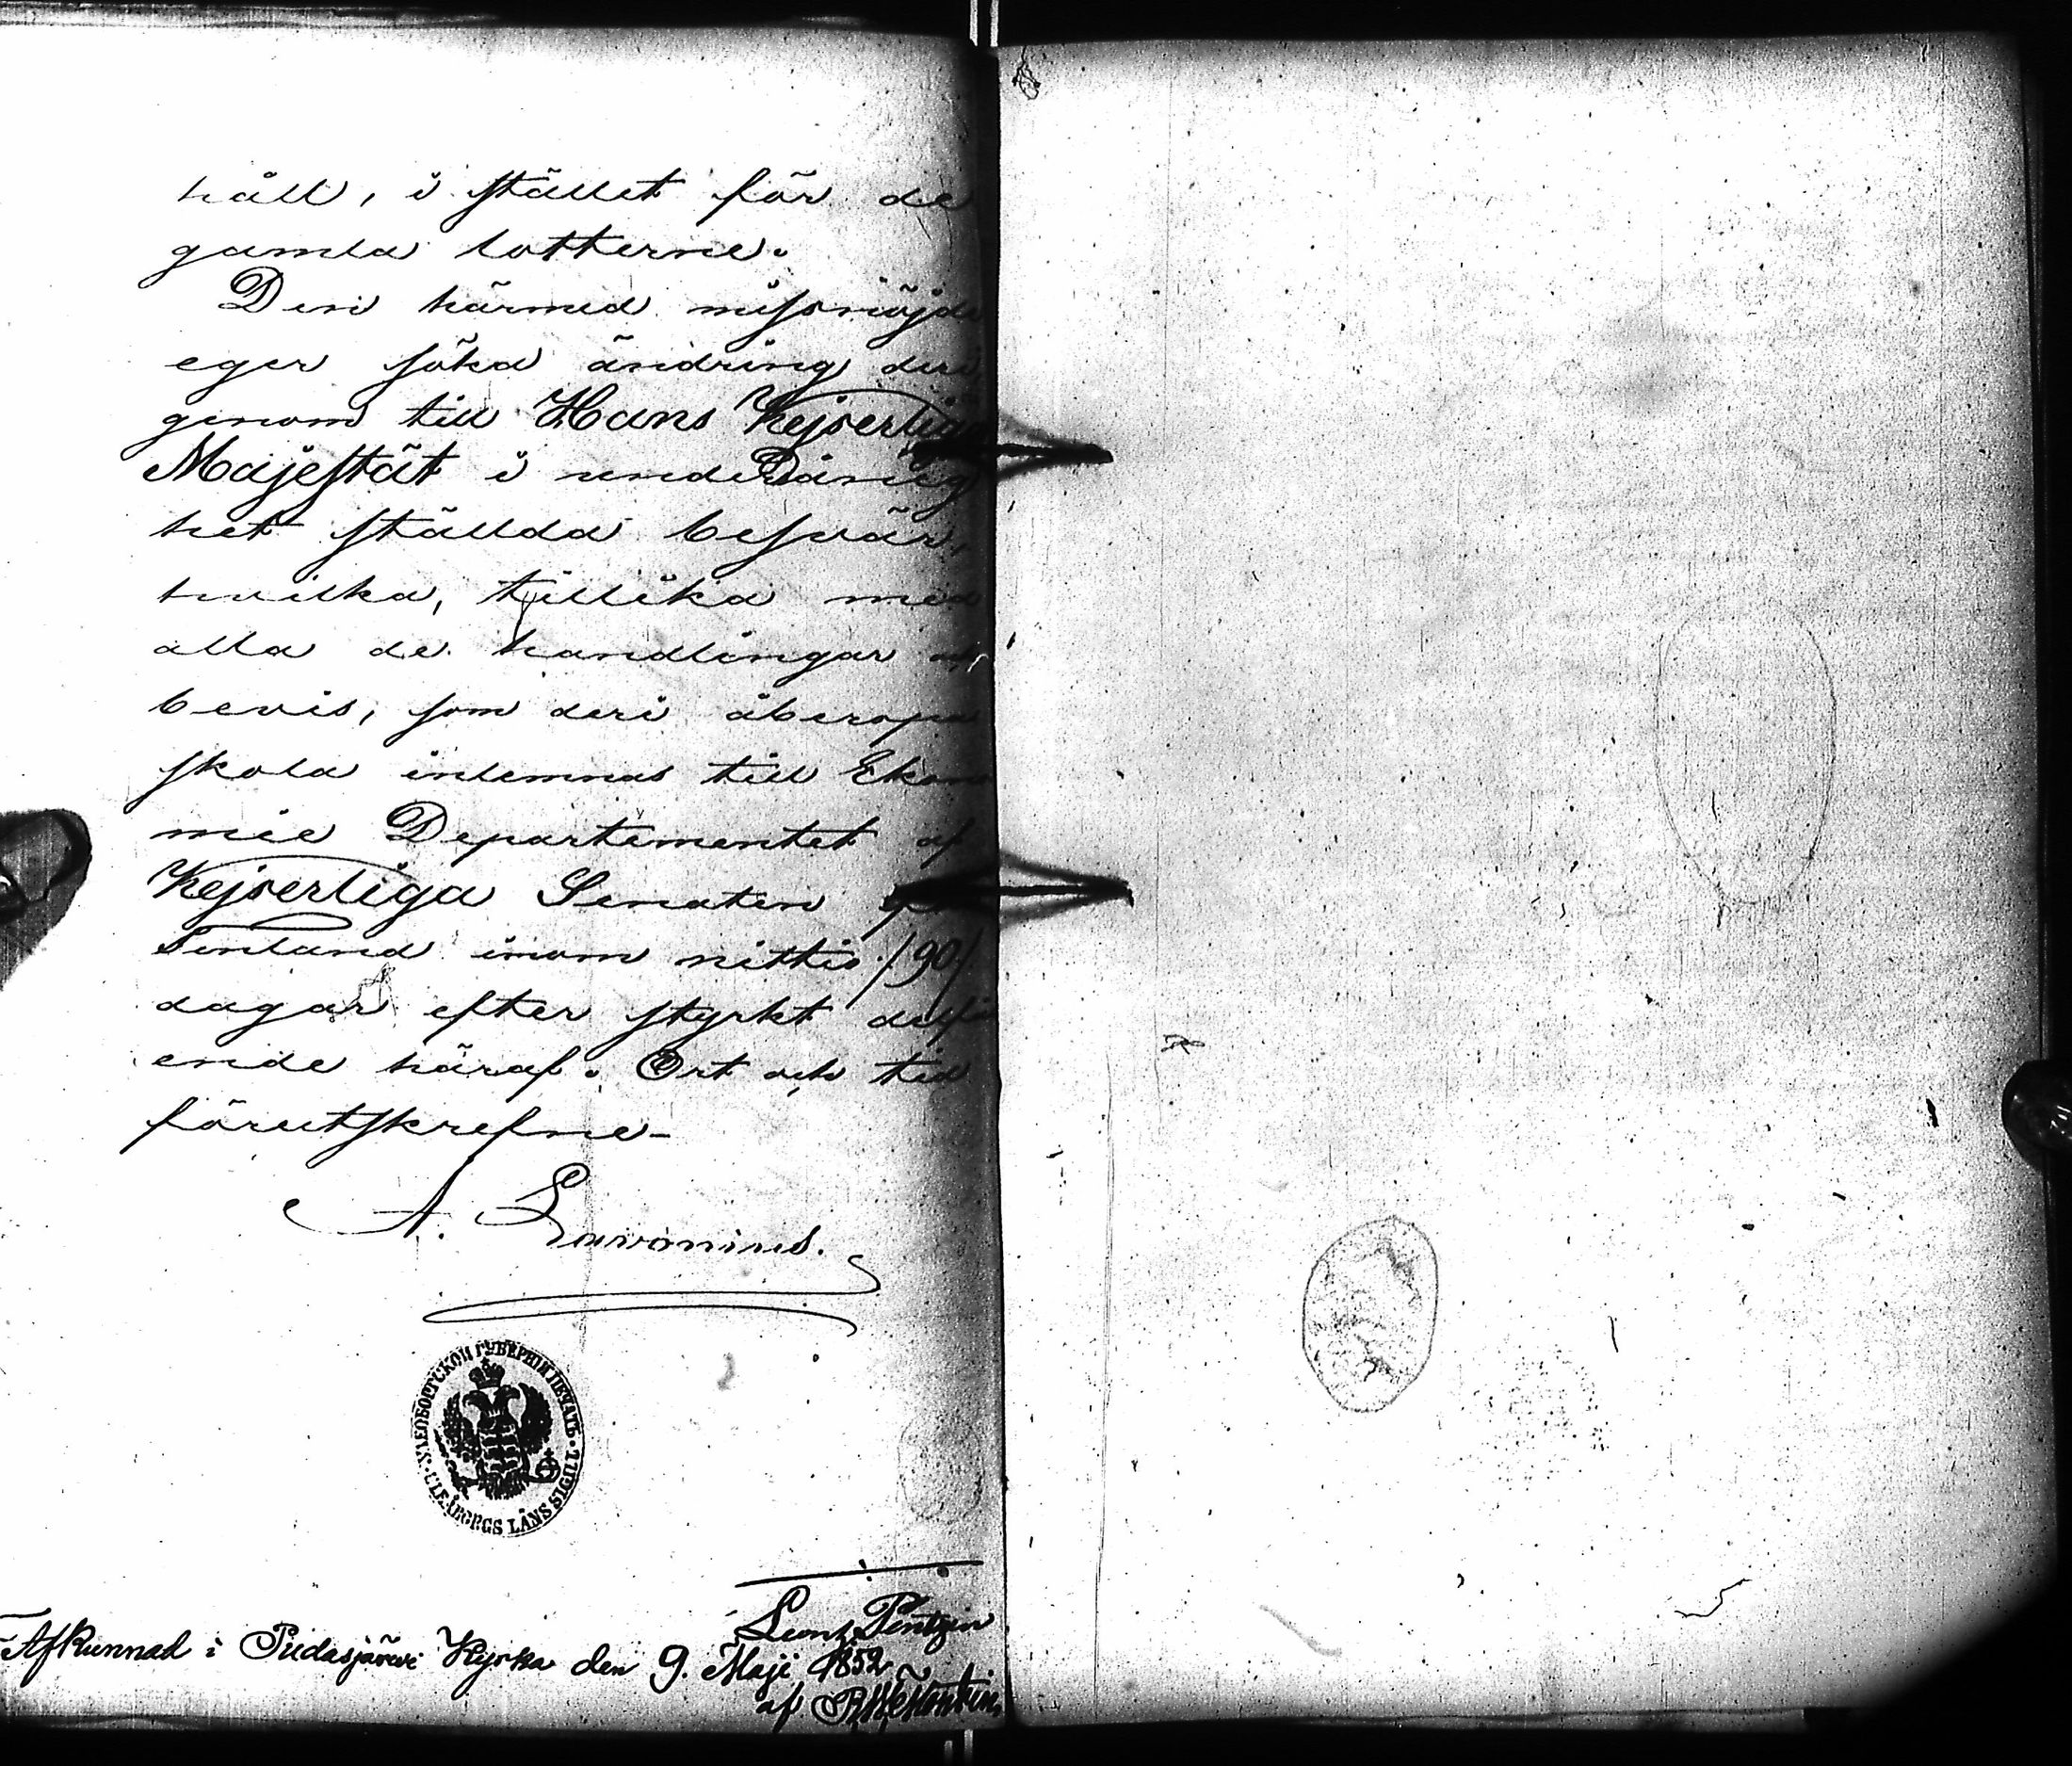 håll, i stället för de
gamla lotterne.
Den härmed missnöjde
eger söka ändring deri
genom till Hans Kejserliga
Majestät i underdånig
het ställda besvär,
hvilka, tillika med
alla de handlingar
bevis, som deri åberopas
skola inlemnas till Ekono
mie Departementet af
Kejserliga Senaten
Finland inom nittio /90/
dagar efter styrkt delfå
ende häraf. Ort och tid
förutskrefne-
A.
УЛЕОБОРГСКОЙ ГУБЕРНІИ ПЕЧАТЬ · ULEÅBORGS LÄNS SIGILL ·
Afkunnad i Pudasjärvi Kyrka den 9. Maji 1852
af